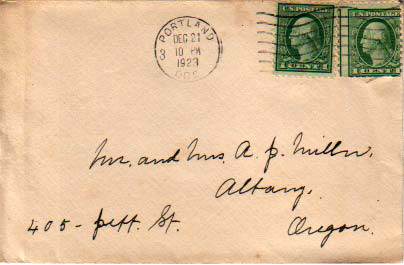 PORTLAND
DEC 21
10 PM
1923
3
ORE.
U.S. POSTAGE
1 CENT 1
U.S. POSTAGE
1 CENT 1
Mr. and Mrs. A. P. Miller.
Albany,
405- Jeff. St. Oregon.